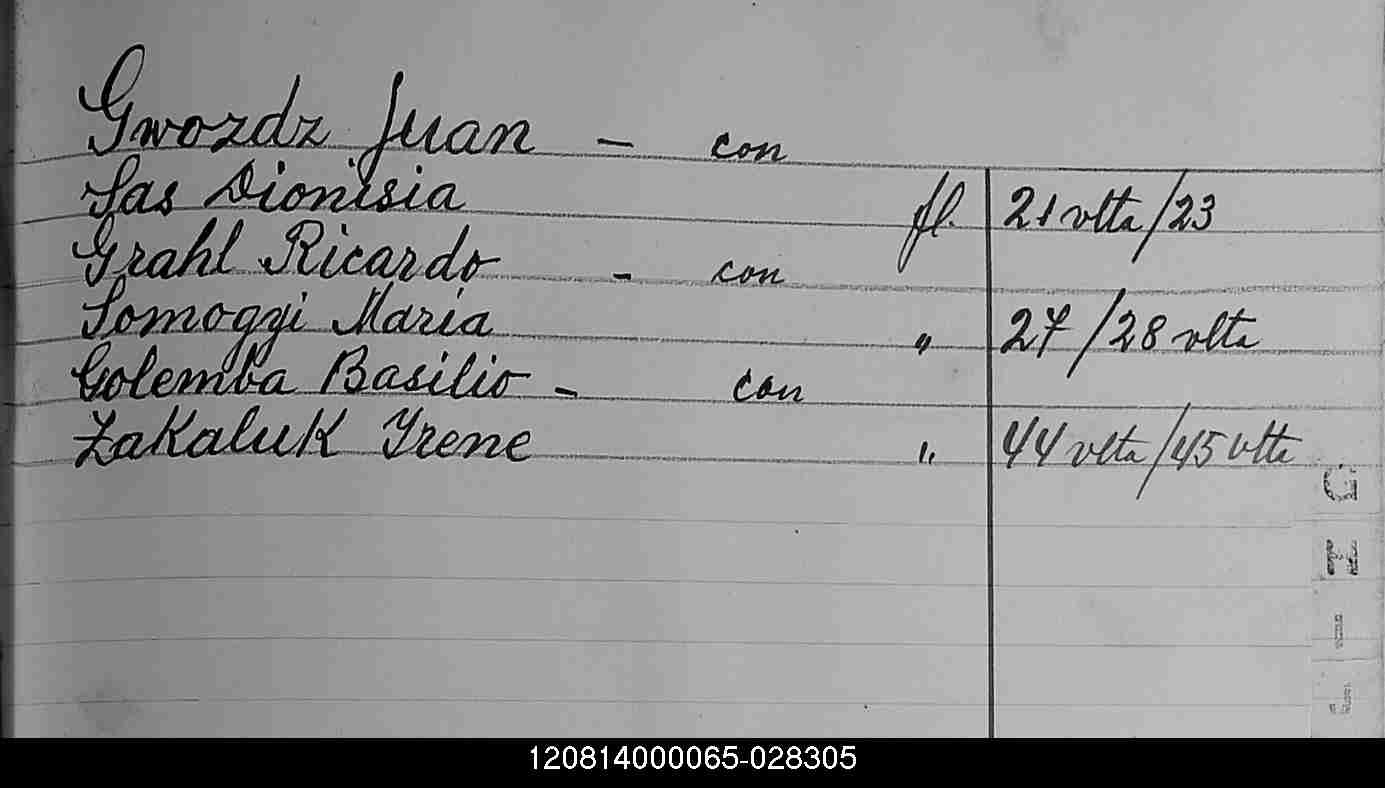 Gwozdz Juan - con
Sas Dionisia fl. 21 vlta/23
Grahl Ricardo - con
Somogyi Maria " 27/28 vlta
Golemba Basilio - con
Zakaluk Yrene " 44 vlta/45 vlta
G
H
I
120814000065-028305